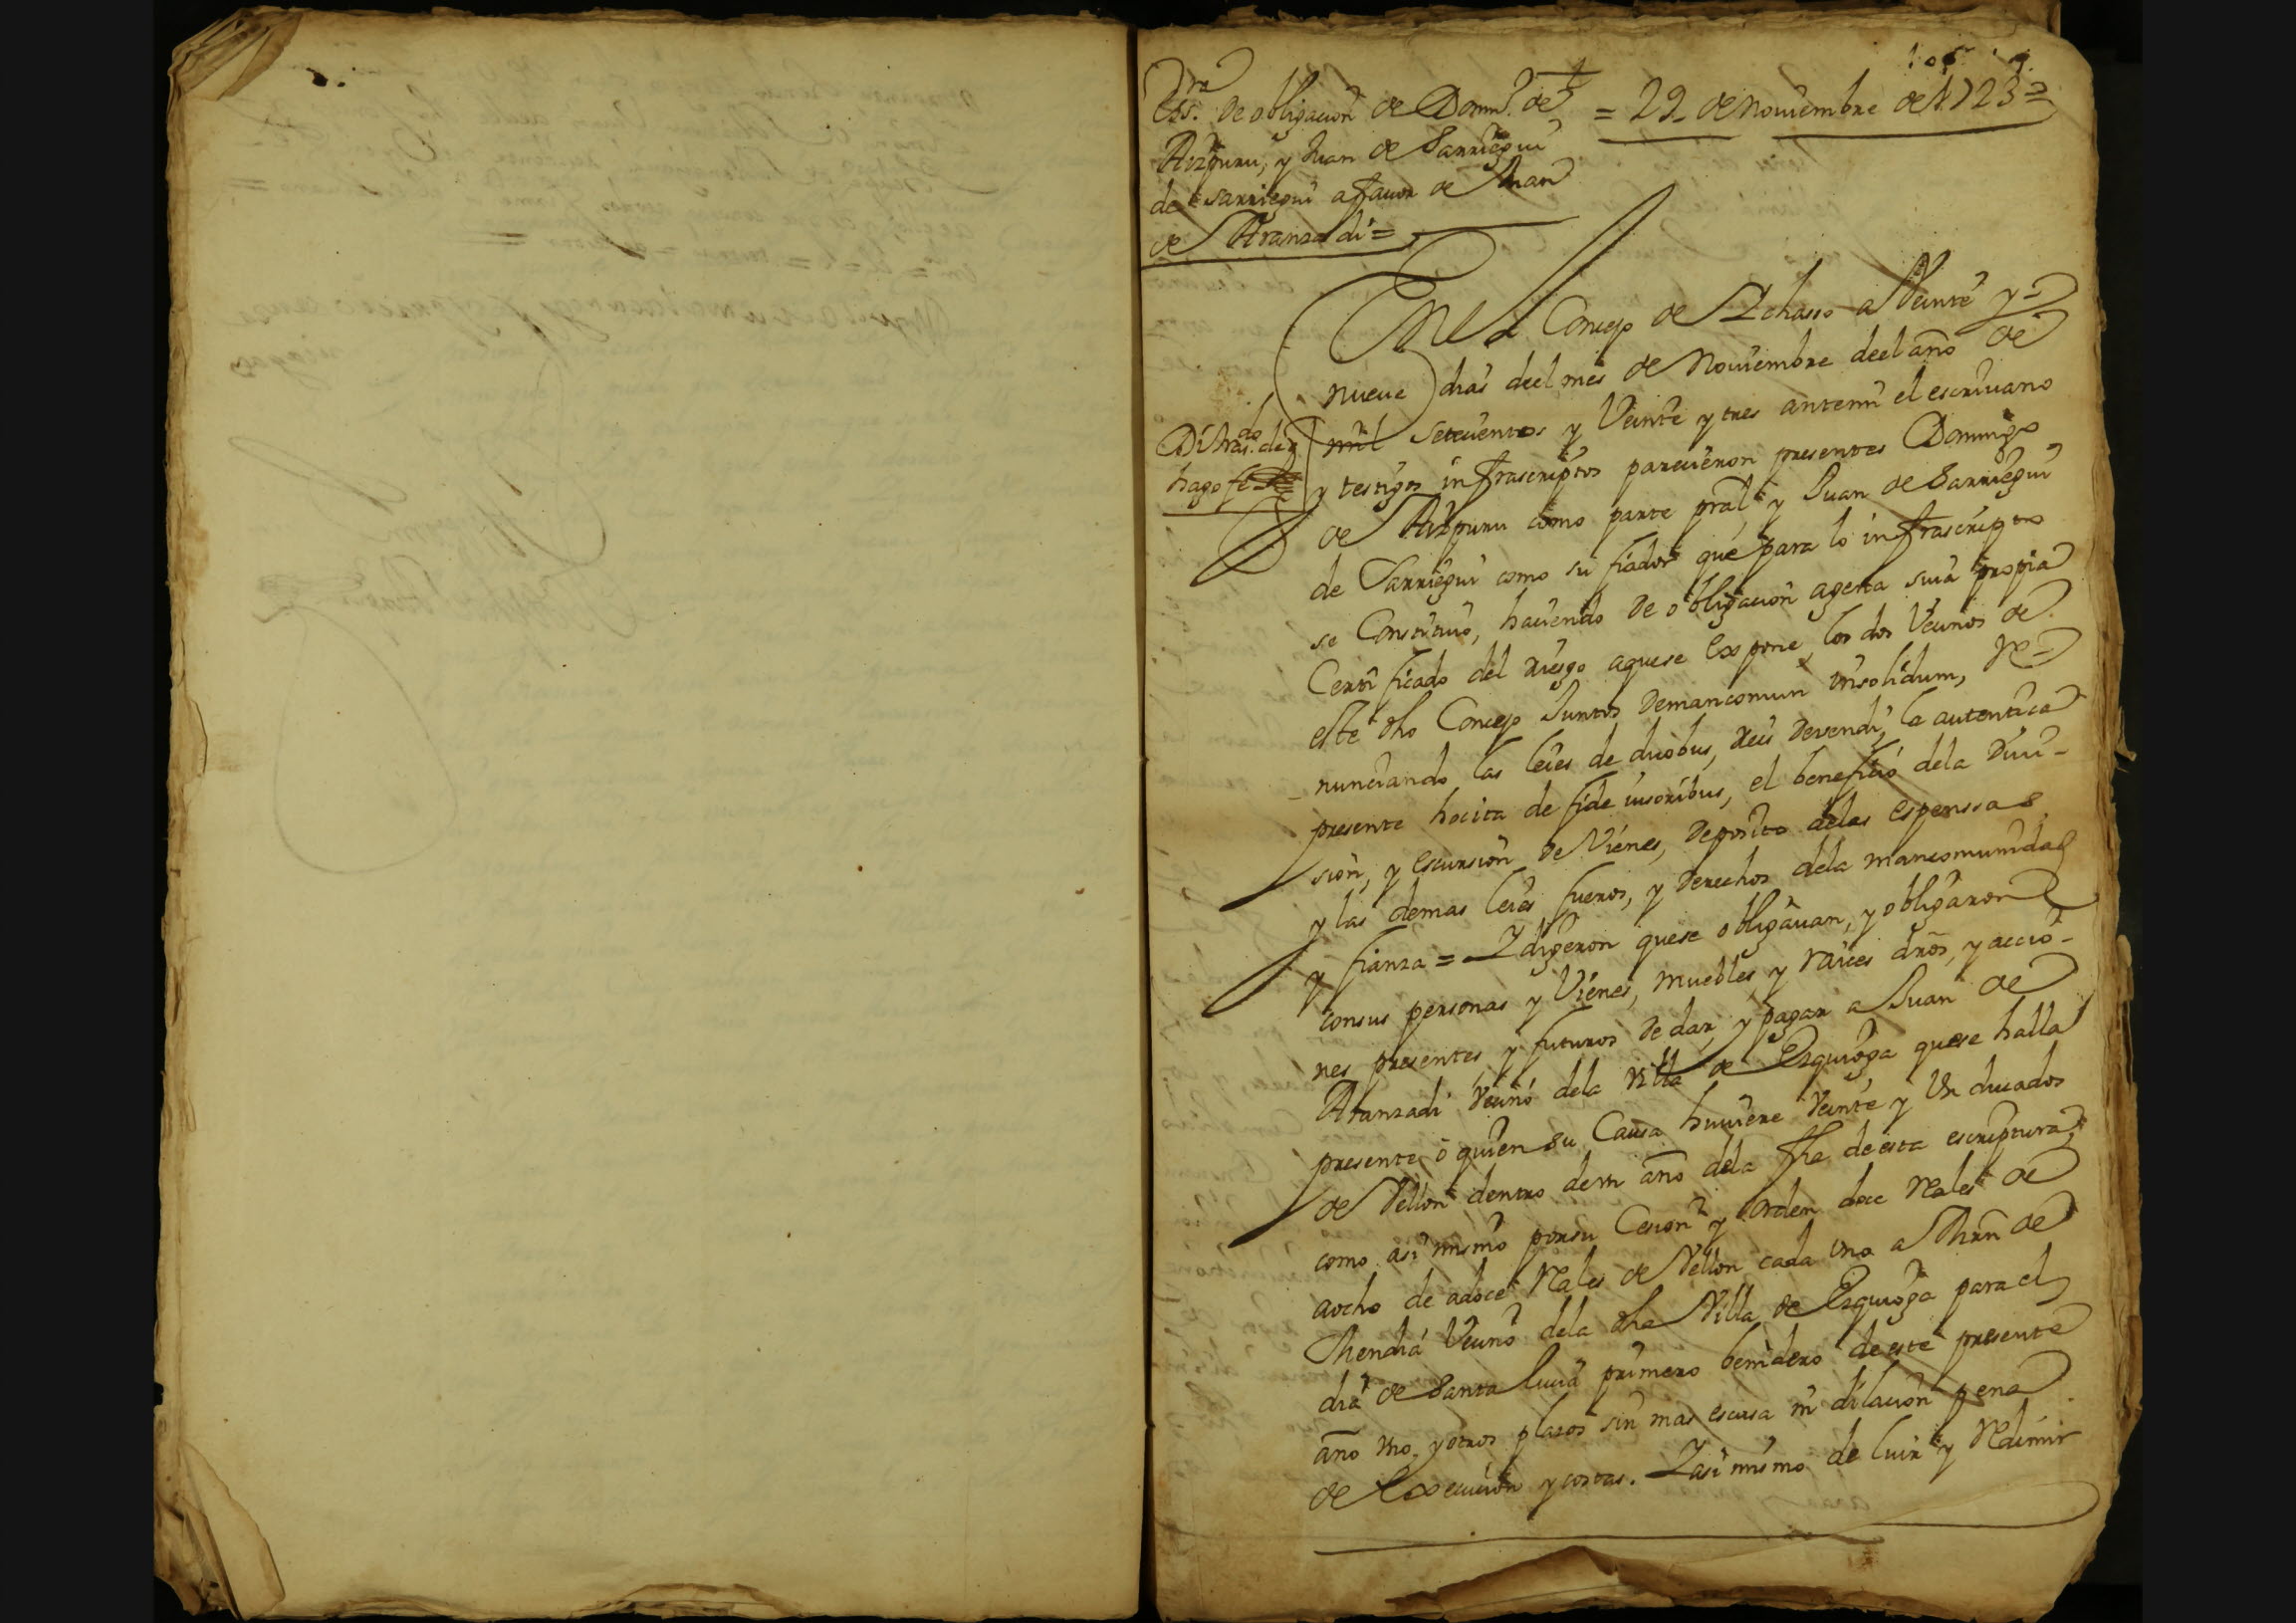 105
Ess.ra de obligacion de Dom.o de
Aizpuru, y Juan de Sarriegui
de Sarriegui a favor de Juan
de Aranzadi =
= 29 de Noviembre de 1723 =
En el Concejo de Ichasso a Veinte y
nueve dias deel mes de Noviembre deel año de
mil setecientos y Veinte y tres antemi el escrivano
y testigos infrascriptos parecieron presentes Domingo
de Aizpuru como parte pral, y Juan de Sarriegui
de Sarriegui como su fiador que para lo infrascripto
se Constituió, haciendo de obligacion agena suia propia
Certificado del riesgo aquese expone, los dos Vecinos de
este dho Concejo Juntos demancomun insolidum, re-
nunciando las leies de duobus, reis devendi, la autentica
presente hocita de fide iusoribus, el beneficio dela Divi-
sion, y escursion de Vienes, deposito delas espenssas
y las demas leies, fueros, y derechos dela mancomunidad
y fianza = Y digeron quese obligavan, y obligaron
consus personas y Vienes, muebles, y raices dros, y accio-
nes presentes, y futuros de dar, y pagar a Juan de
Aranzadi Vecino dela Villa de Ezquioga quese halla
presente, o quien su Causa huviere Veinte y Un ducados
de Vellon dentro de un año dela fha de esta escriptura,
como asi mismo por su Cesion y orden doce Reales de
aocho de adoce Reales de Vellon cada Uno a Thrn de
Mendia Vecino dela dha Villa de Ezquioga para el
dia de Santa Lucia primero benidero de este presente
año Uno, y otros plazos sin mas escusa ni dilacion pena
de Execucion y costas. Y asi mismo de luir y Redimir
hago fe